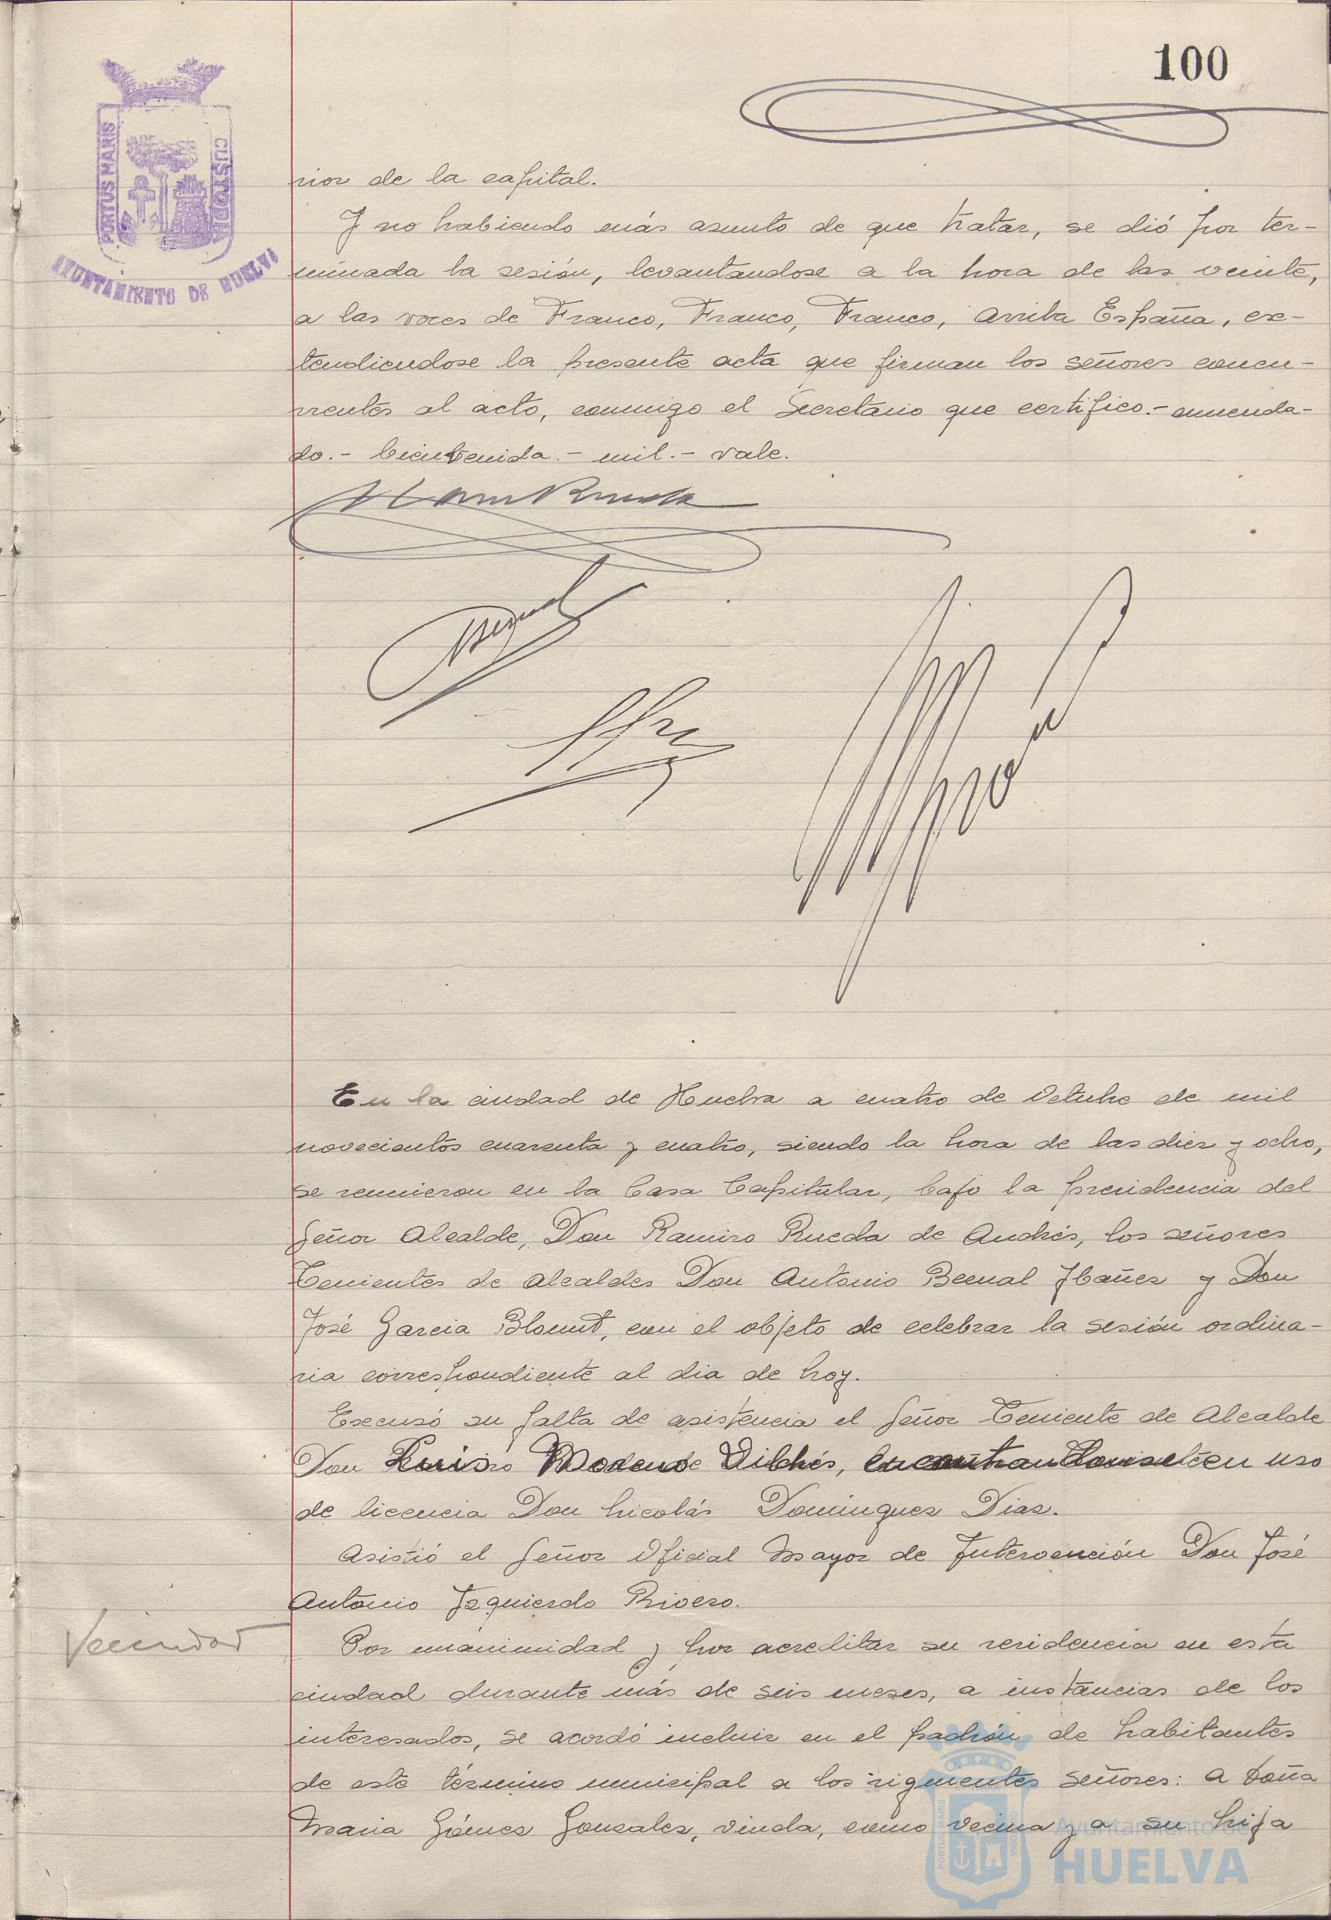 100
PORTUS MARIS
CUSTODIA
AYUNTAMIENTO DE HUELVA
rior de la capital.
Y no habiendo más asunto de que tratar, se dió por ter-
minada la sesión, levantandose a la hora de las veinte,
a las voces de Franco, Franco, Franco, Arriba España, ex-
tendiendose la presente acta que firman los señores concu-
rrentes al acto, conmigo el Secretario que certifico.- enmenda-
do.- bienvenida.- mil.- vale.
En la ciudad de Huelva a cuatro de Octubre de mil
novecientos cuarenta y cuatro, siendo la hora de las diez y ocho,
se reunieron en la Casa Capitular, bajo la presidencia del
Señor Alcalde, Don Ramiro Rueda de Andrés, los señores
Tenientes de Alcaldes Don Antonio Bernal Ibañez y Don
José Garcia Blount, con el objeto de celebrar la sesión ordina-
ria correspondiente al dia de hoy.
Excusó su falta de asistencia el Señor Teniente de Alcalde
Don Luis Modesto Vilchés, encontrandose en uso
de licencia Don Nicolás Dominguez Diaz.
Asistió el Señor Oficial Mayor de Intervención Don José
Antonio Izquierdo Rivero.
Vecindad
Por unanimidad y por acreditar su residencia en esta
ciudad durante más de seis meses, a instancias de los
interesados, se acordó incluir en el padrón de habitantes
de este término municipal a los siguientes señores: a doña
Maria Gómez Gonzalez, viuda, como vecina y a su hija
Ayuntamiento de
HUELVA